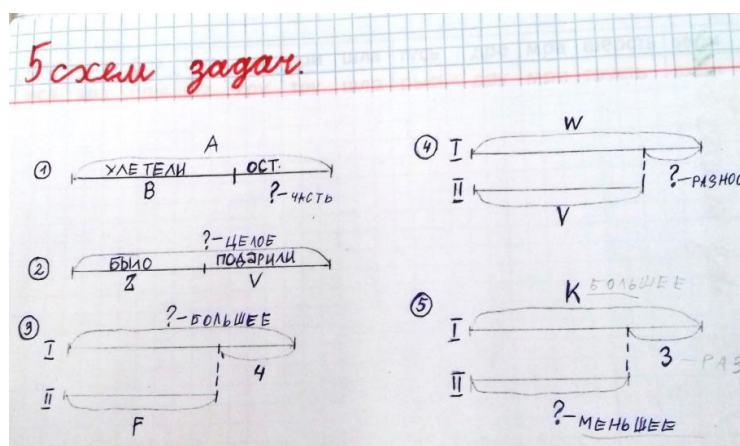 5 схем задач.
① A
УЛЕТЕЛИ ОСТ.
B ?-ЧАСТЬ
② ?-ЦЕЛОЕ
БЫЛО ПОДАРИЛИ
Z V
③ ?-БОЛЬШЕЕ
I
4
II
F
④ W
I
?-РАЗНОС
II
V
⑤ K БОЛЬШЕЕ
I
3 -РАЗ
II
?-МЕНЬШЕЕ